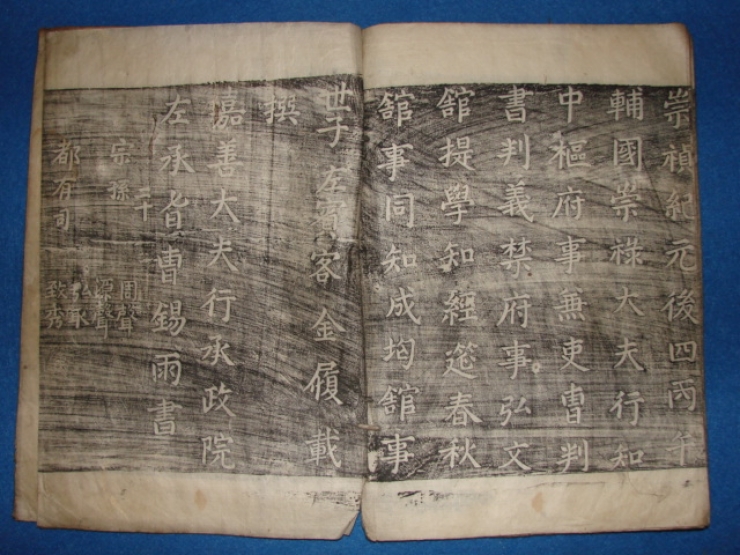 崇禎紀元後四丙午
輔國崇祿大夫行知
中樞府事兼吏曹判
書判義禁府事弘文
館提學知經筵春秋
館事同知成均館事
世子左賓客金履載
撰
嘉善大夫行承政院
左承旨曹錫雨書
宗孫
周聲
聲
都有司
弘
致秀